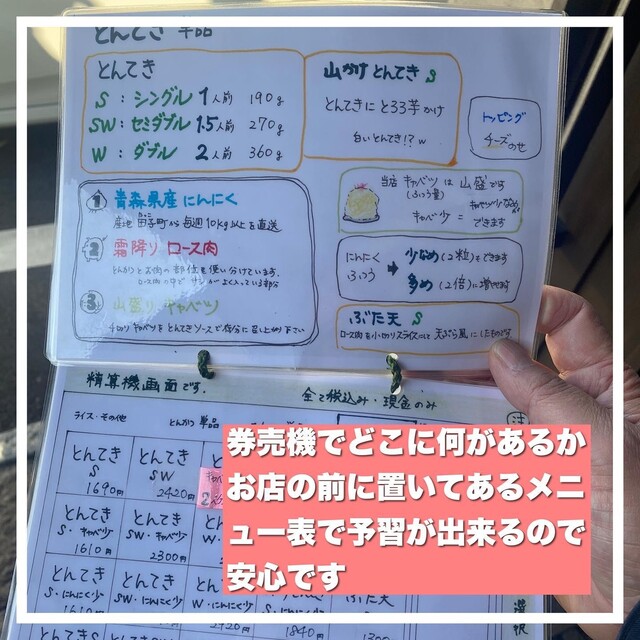 とんてき 単品
とんてき
S : シングル 1人前 190g
SW : セミダブル 1.5人前 270g
W : ダブル 2人前 360g
山かけとんてき S
とんてきにとろろ芋かけ
白いとんてき!? w
トッピング
チーズのせ
1 青森県産にんにく
産地 田子町から毎週10kg以上を直送
2 霜降りロース肉
3 山盛りキャベツ
千切りキャベツをとんてきソースで存分に召し上がり下さい
当店 キャベツは山盛です
(ふつう量)
キャベ少 =
できます
にんにく
ふつう → 少なめ(2粒)もできます
多め(2倍)に増せます
ぶた天 S
精算機画面です。
全て税込み・現金のみ
ライス・その他
とんかつ
単品
とんてき S 1690円
とんてき SW 2420円
とんてき S・キャベ少 1610円
とんてき SW・キャベ少 2300円
とんてき S・にんにく少 1610円
とんてき SW・にんにく少
W・にんにく少
S・にんにく少 1840円
ぶた天
1300
選択
券売機でどこに何があるか
お店の前に置いてあるメニ
ュー表で予習が出来るので
安心です